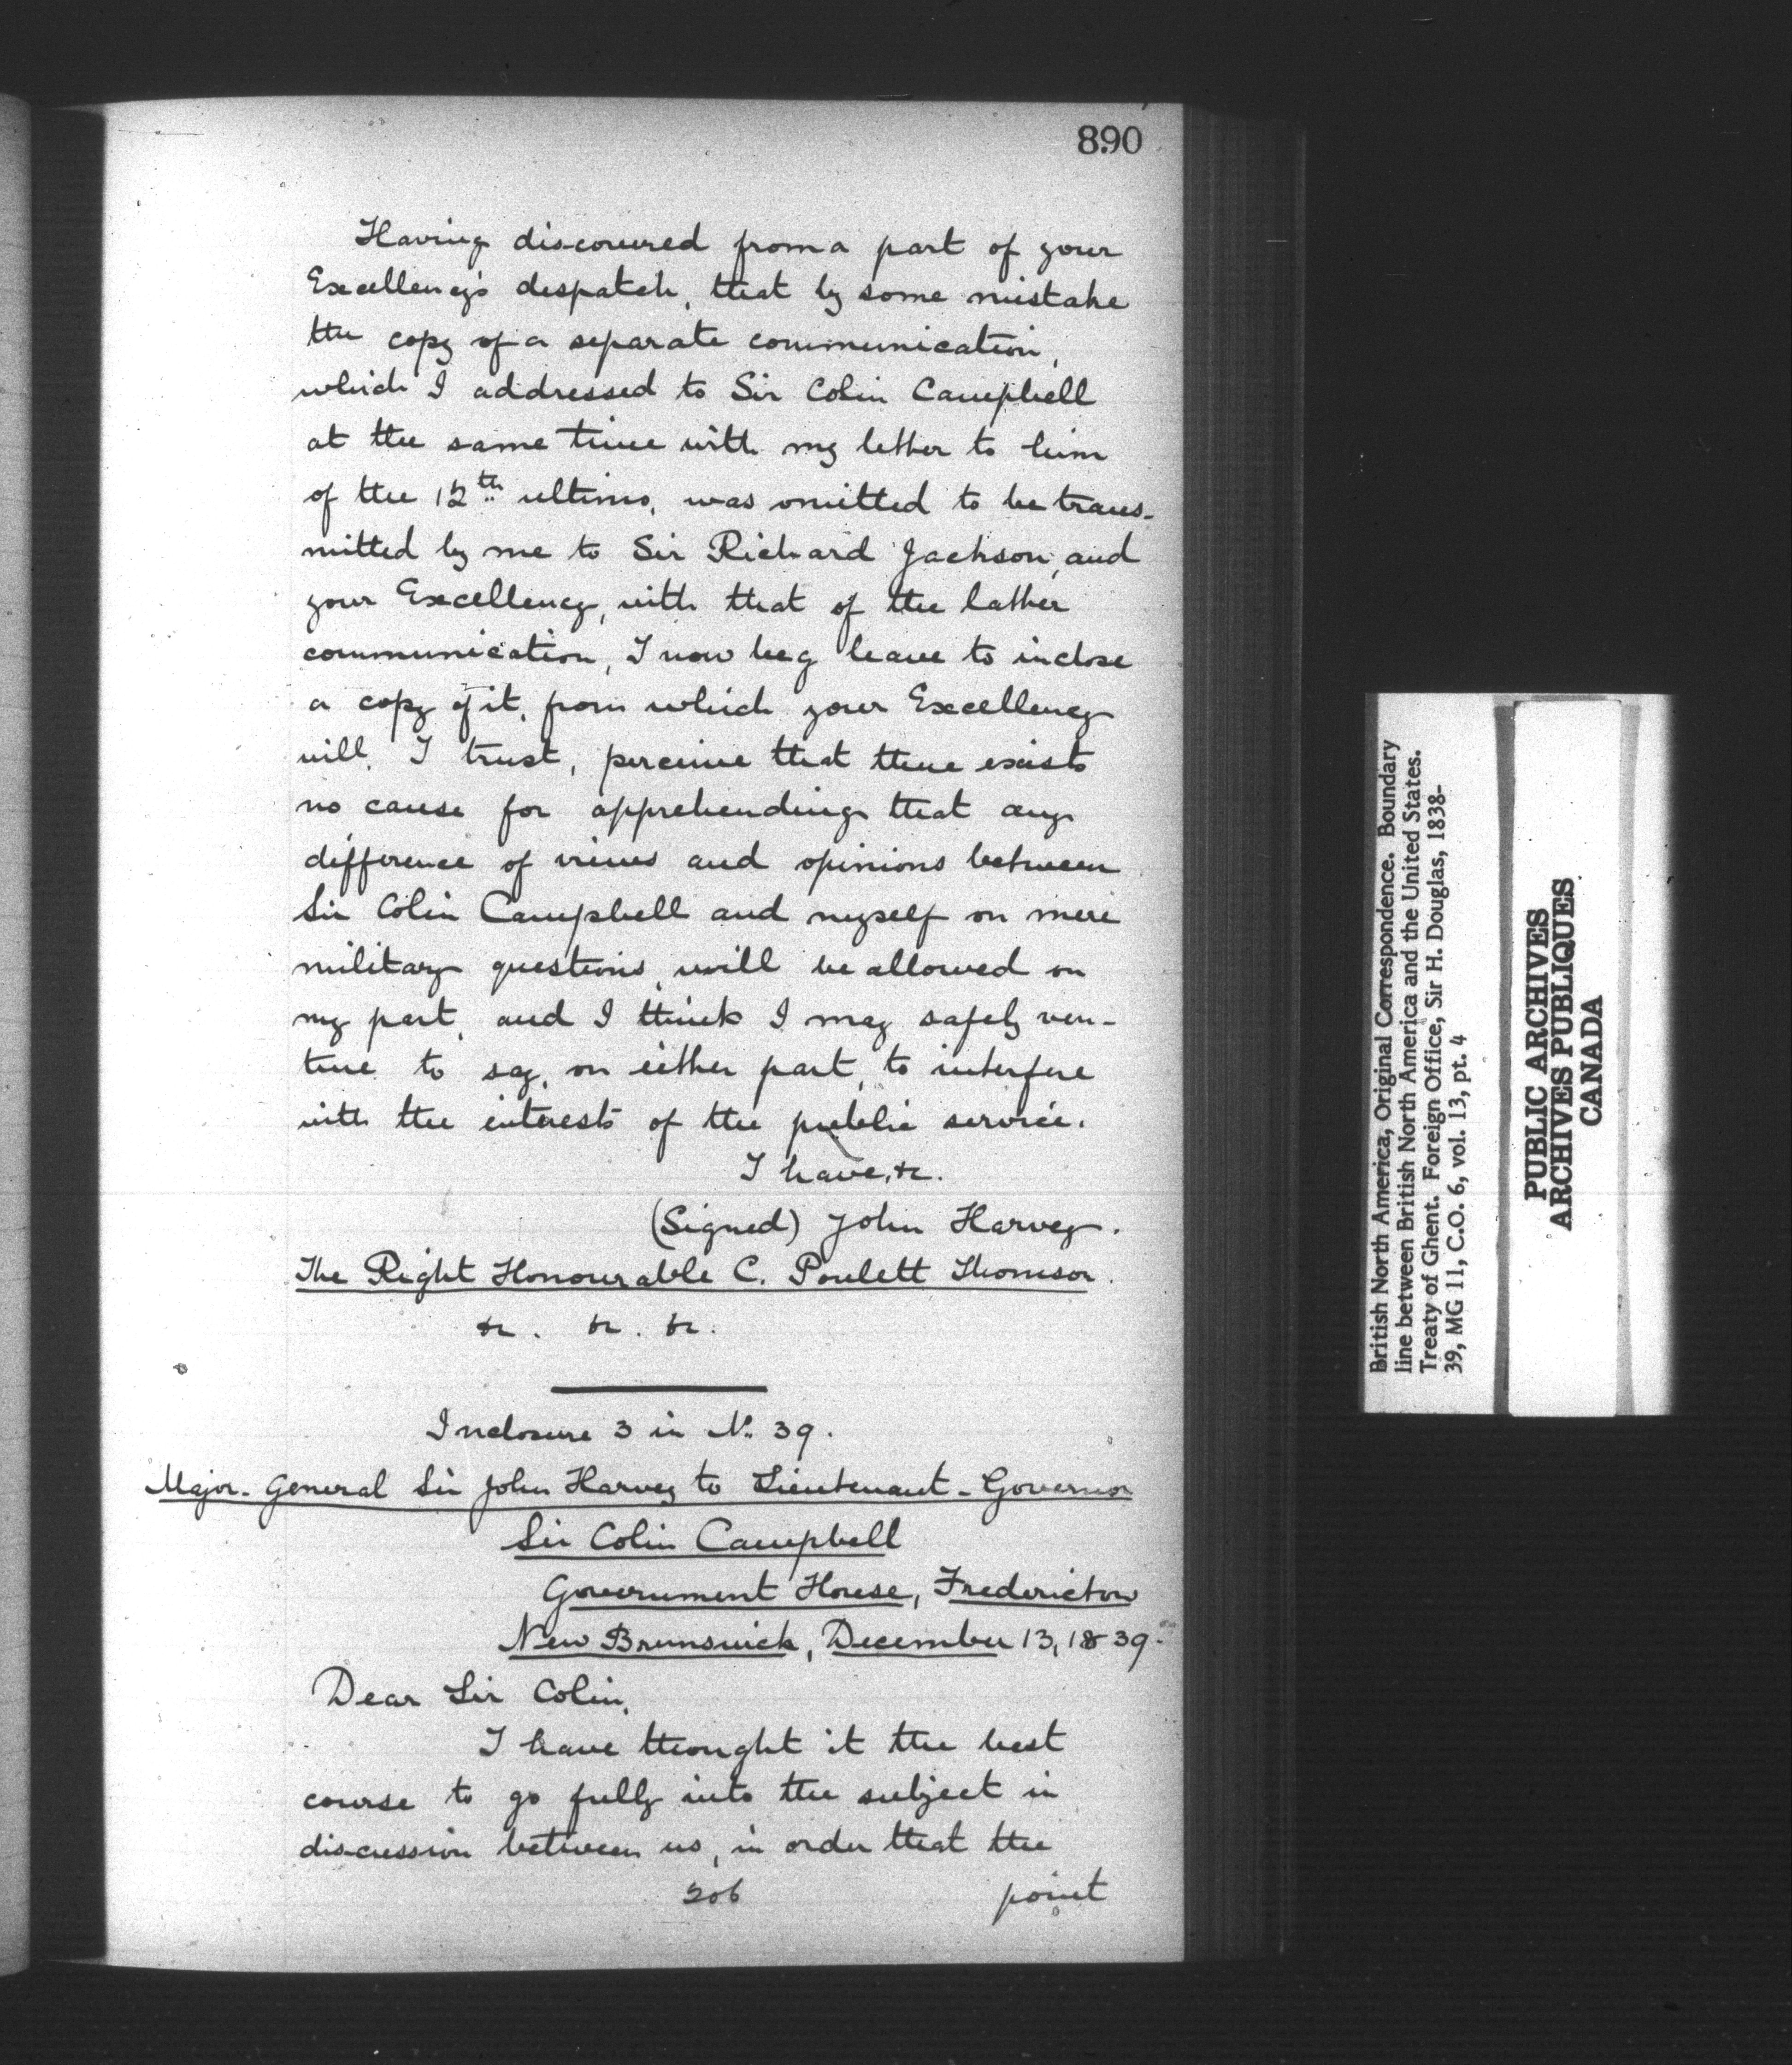 890
Having discovered from a part of your
Excellency's despatch, that by some mistake
the copy of a separate communication,
which I addressed to Sir Colin Campbell
at the same time with my letter to him
of the 12th ultimo, was omitted to be trans-
mitted by me to Sir Richard Jackson, and
your Excellency, with that of the latter
communication, I now beg leave to inclose
a copy of it, from which your Excellency
will, I trust, perceive that there exists
no cause for apprehending that any
difference of views and opinions between
Sir Colin Campbell and myself on mere
military questions, will be allowed on
my part, and I think I may safely ven-
ture to say, on either part, to interfere
with the interests of the public service.
I have, &c.
(Signed) John Harvey.
The Right Honourable C. Poulett Thomson.
&c. &c. &c.
Inclosure 3 in No. 39.
Major-General Sir John Harvey to Lieutenant-Governor
Sir Colin Campbell
Government House, Fredericton
New Brunswick, December 13, 1839.
Dear Sir Colin,
I have thought it the best
course to go fully into the subject in
discussion between us, in order that the
206 point
British North America, Original Correspondence. Boundary
line between British North America and the United States.
Treaty of Ghent. Foreign Office, Sir H. Douglas, 1838-
39, MG 11, C.O. 6, vol. 13, pt. 4
PUBLIC ARCHIVES
ARCHIVES PUBLIQUES
CANADA